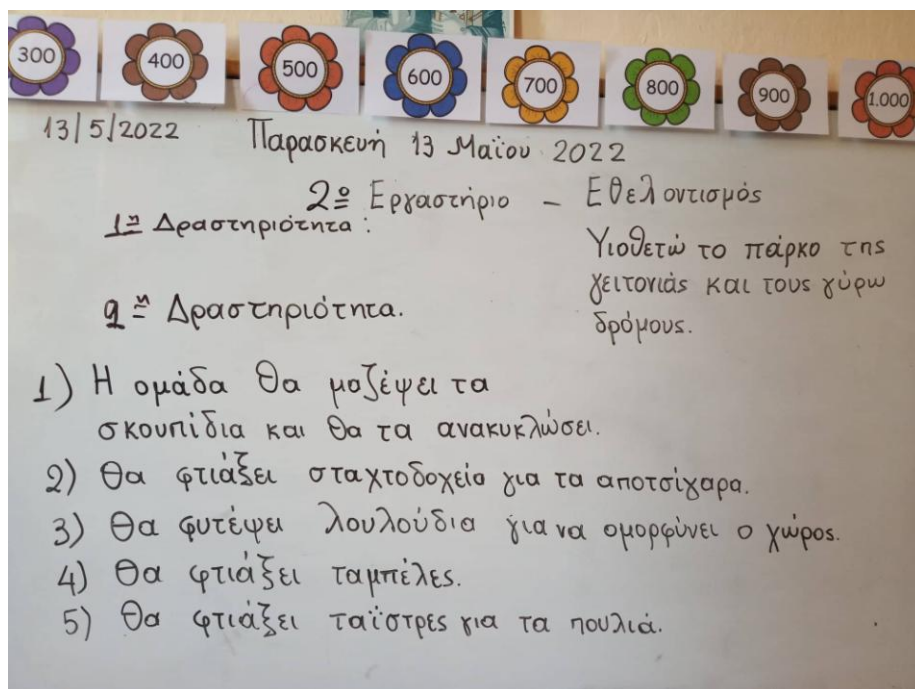 300 400 500 600 700 800 900 1.000
13/5/2022 Παρασκευή 13 Μαΐου 2022
2º Εργαστήριο – Εθελοντισμός
1η Δραστηριότητα :
Υιοθετώ το πάρκο της
γειτονιάς και τους γύρω
δρόμους.
2η Δραστηριότητα.
1) Η ομάδα θα μαζέψει τα
σκουπίδια και θα τα ανακυκλώσει.
2) Θα φτιάξει σταχτοδοχείο για τα αποτσίγαρα.
3) Θα φυτέψει λουλούδια για να ομορφύνει ο χώρος.
4) Θα φτιάξει ταμπέλες.
5) Θα φτιάξει ταΐστρες για τα πουλιά.